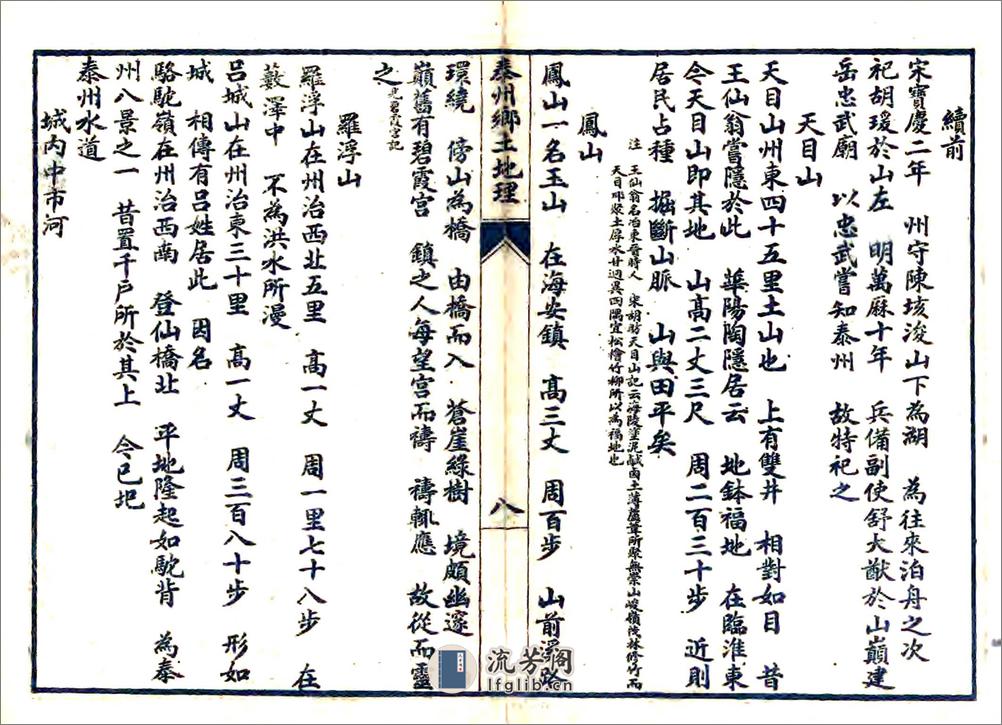 續前
宋寶慶二年 州守陳垓浚山下為湖 為往來泊舟之次
祀胡瑗於山左 明萬厤十年 兵備副使舒大猷於山巔建
岳忠武廟 以忠武嘗知泰州 故特祀之
天目山
天目山州東四十五里土山也 上有雙井 相對如目 昔
王仙翁嘗隱於此 華陽陶隱居云 地鉢福地 在臨淮東
今天目山即其地 山高二丈三尺 周二百三十步 近則
居民占種 掘斷山脈 山與田平矣
注 王仙翁名冶東晉時人 宋胡昉天目山記云海陵塗泥鹹鹵土薄蘆葦所聚無崇山峻嶺茂林修竹而
天目耶聚土厚水甘迥異西隅宜松檜竹柳所以為福地也
鳳山
鳳山一名玉山 在海安鎮 高三丈 周百步 山前溪路
泰州鄉土地理
八
環繞 傍山為橋 由橋而入 蒼崖綠樹 境頗幽邃
巔舊有碧霞宮 鎮之人每望宮而禱 禱輒應 故從而靈
之 見碧霞宮記
羅浮山
羅浮山在州治西北五里 高一丈 周一里七十八步 在
藪澤中 不為洪水所漫
呂城山在州治東三十里 高一丈 周三百八十步 形如
城 相傳有呂姓居此 因名
駱駝嶺在州治西南 登仙橋北 平地隆起如駝背 為泰
州八景之一 昔置千戶所於其上 今已圯
泰州水道
城內中市河
流芳閣
lfglib.cn